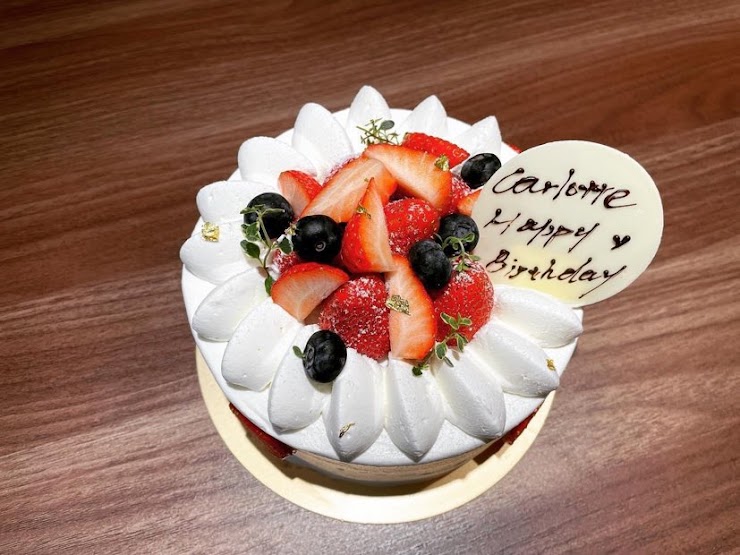 Carlotte
Happy ♥
Birthday